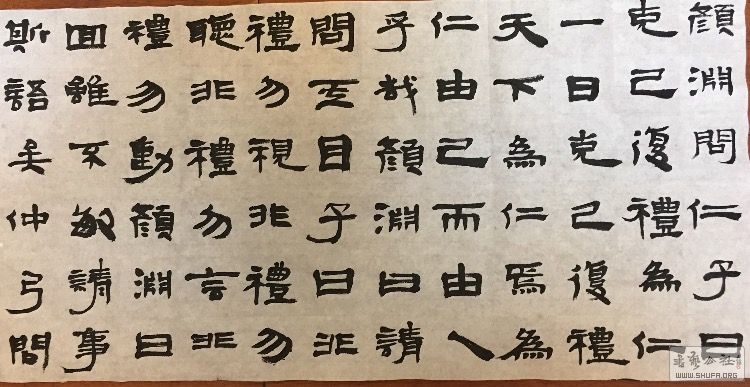 顏淵問仁子曰
克己復禮為仁
一日克己復禮
天下為仁焉為
仁由己而由人
乎哉顏淵曰請
問亓目子曰非
禮勿視非禮勿
聽非禮勿言非
禮勿動顏淵曰
回雖不敏請事
斯語矣仲弓問
WWW.SHUFA.ORG